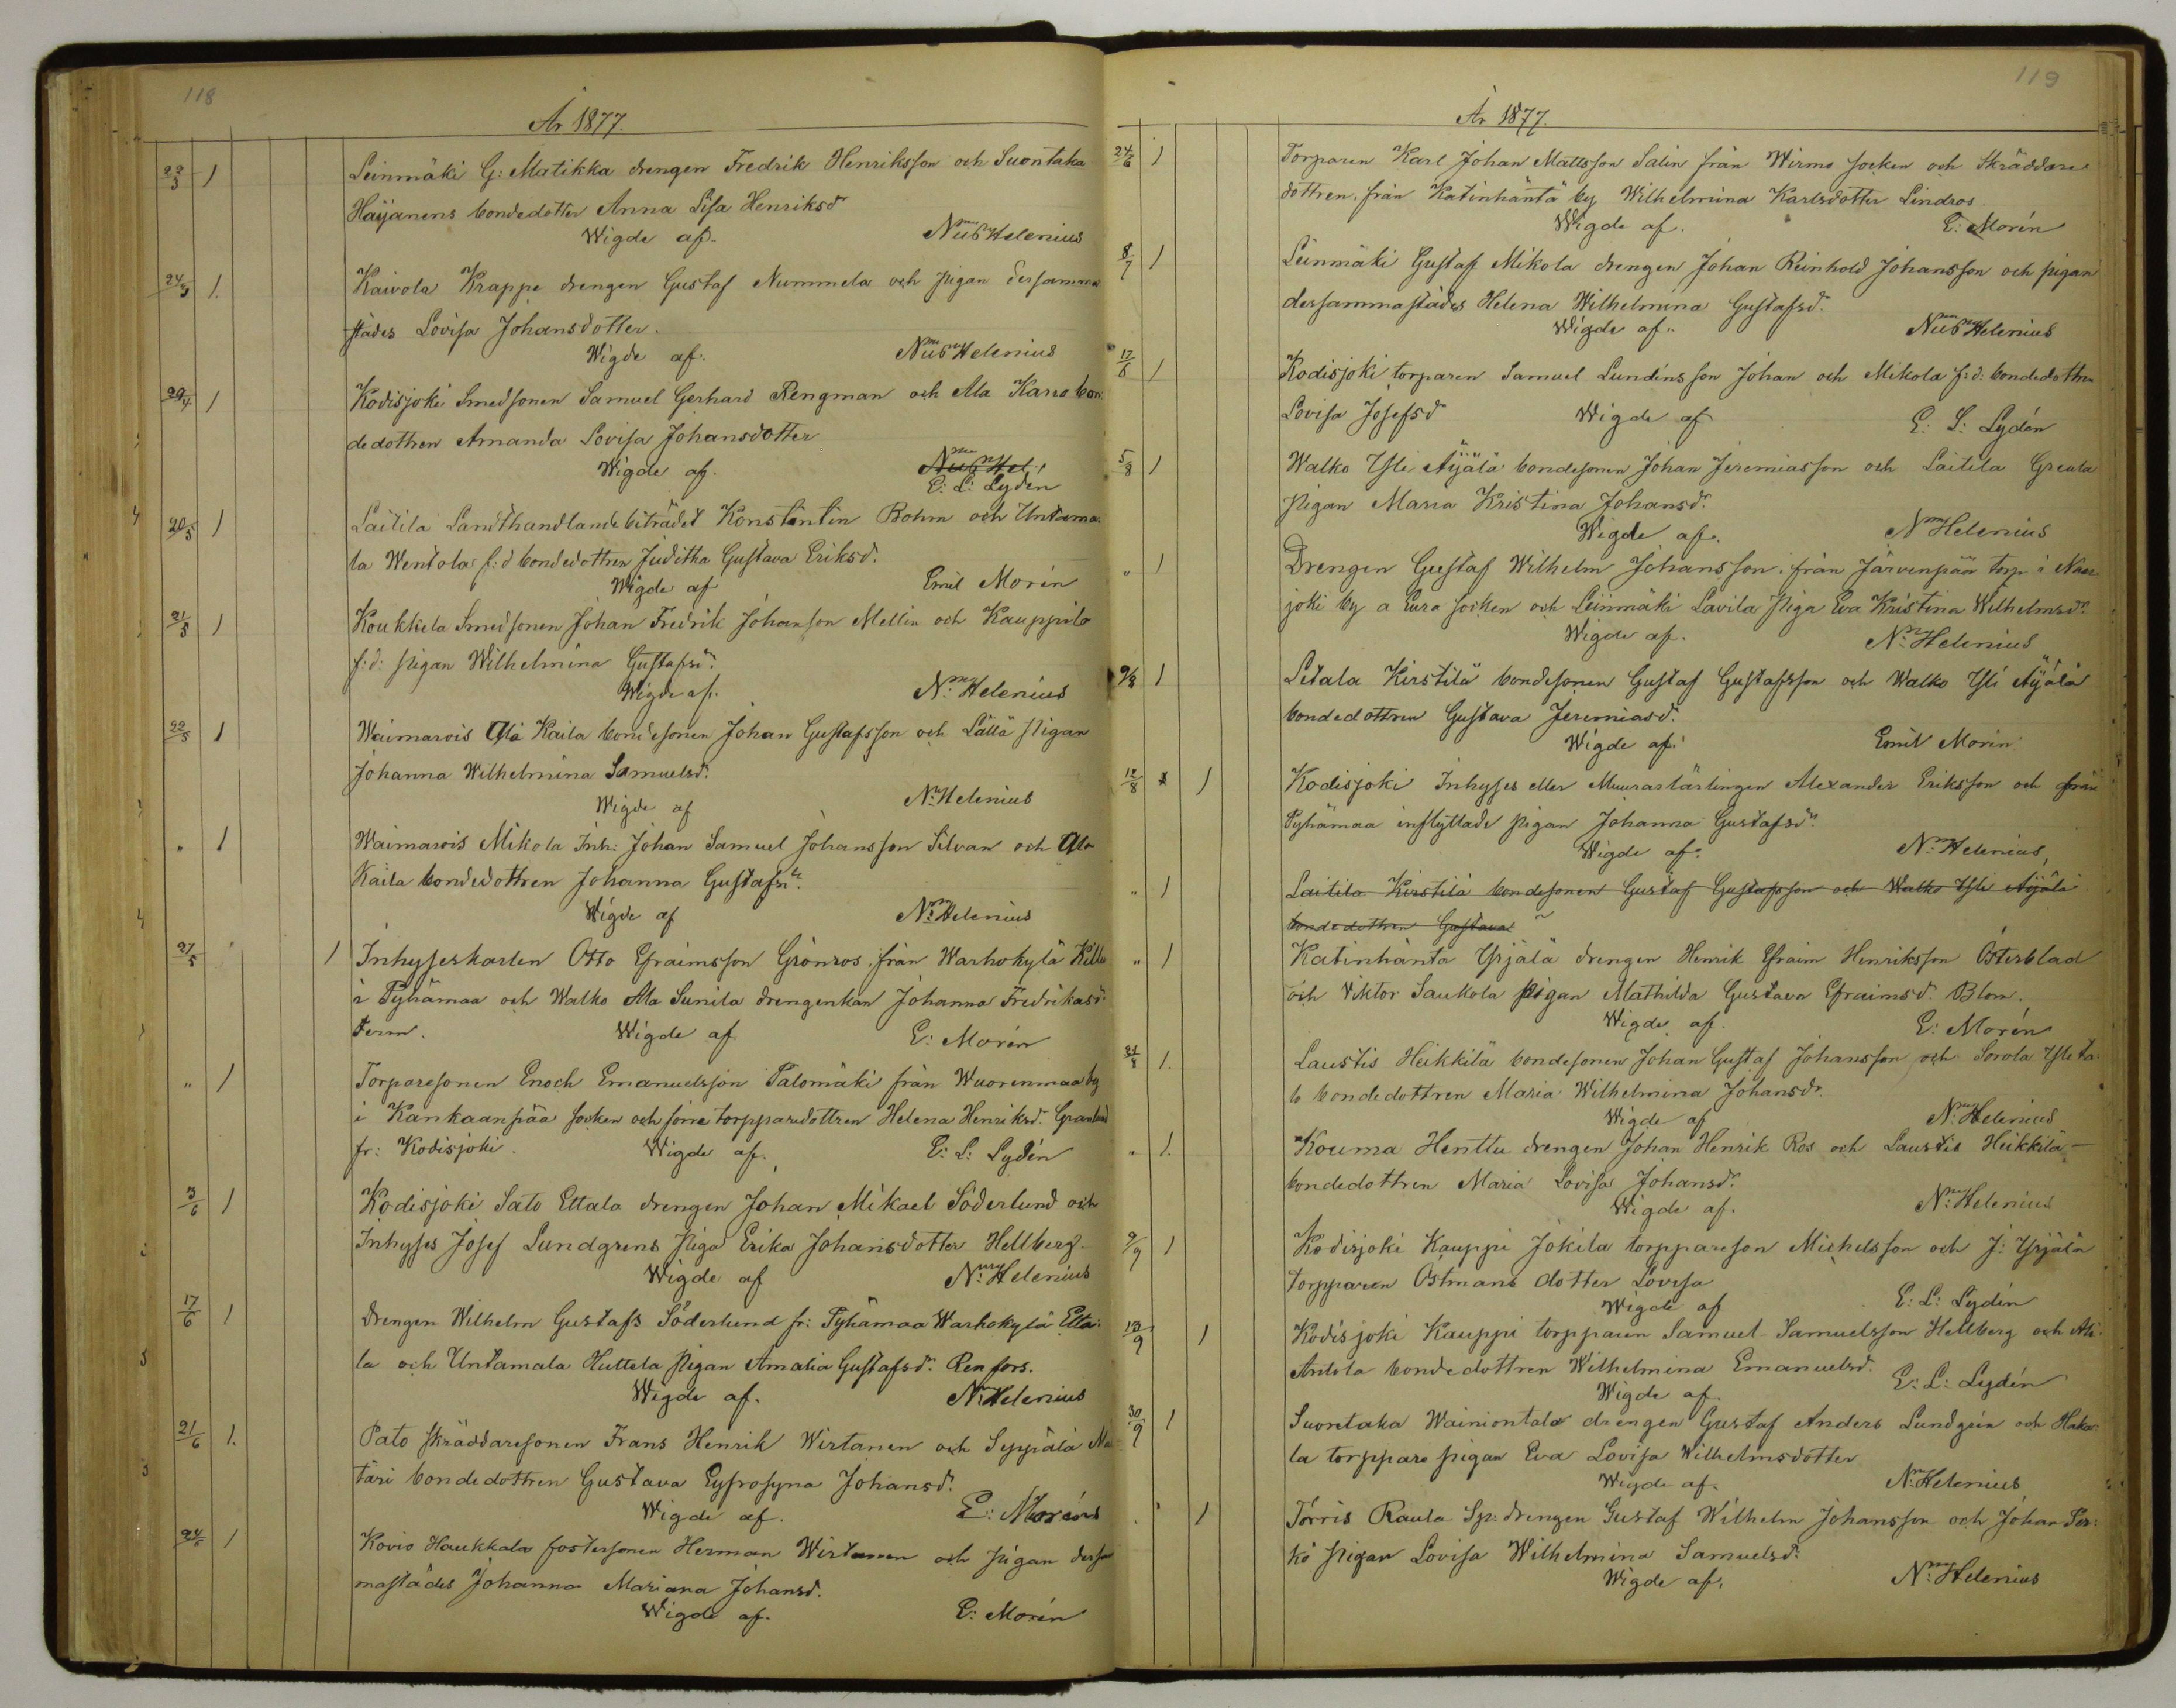 118
År 1877.
22/3 1 Leinmäki G: Matikka drengen Fredrik Henriksson och Suontaka
Haijanens bondedotter Anna Lisa Henriksdr
Wigde af. Nils Helenius
24/3 1. Kaivola Krappe drengen Gustaf Nummela och pigan dersamma
städes Lovisa Johansdotter.
Wigde af: Nils Helenius
29/4 1 Kodisjoki Smedsonen Samuel Gerhard Rengman och Ala Karro bon:
dedottren Amanda Lovisa Johansdotter
Wigde af. Nils Hel.
E: L: Lydén
20/5 1 Laitila Landthandlandebiträdet Konstantin Bohm och Untama:
la Wentola f:d bondedottren Juditha Gustava Eriksd:
Wigde af Emil Morén
21/5 1 Koukkela Smedsonen Johan Fredrik Johansson Mellin och Kauppila
f:d: pigan Wilhelmina Gustafsd:
Wigde af. N: Helenius
22/5 1 Waimarois Ala Kaila bondesonen Johan Gustafsson och Lällä pigan
Johanna Wilhelmina Samuelsd:
Wigde af N: Helenius
" 1 Waimarois Mikola Inh: Johan Samuel Johansson Silvan och Ala
Kaila bondedottren Johanna Gustafsdr.
Wigde af N: Helenius
27/5 1 Inhyseskarlen Otto Efraimsson Grönros från Warhokylä
i Pyhämaa och Walko Ala Sunila drengenkan Johanna Fredrikasd:
term. Wigde af E: Morén
" 1 Torparesonen Enoch Emanuelsson Palomäki från Wuorenmaa by
i Kankaanpää socken och torpparedottren Helena Henriksd: Granlund
fr: Kodisjoki. Wigde af. E: L: Lydén
3/6 1 Kodisjoki Sato Ettala drengen Johan Mikael Söderlund och
Inhyses Josef Lundgrens piga Erika Johansdotter Hellberg.
Wigde af N: Helenius
17/6 1 Drengen Wilhelm Gustafs Söderlund fr: Pyhämaa Warhokylä Etta:
la och Untamala Huttela pigan Amalia Gustafsd: Renfors.
Wigde af. N: Helenius
21/6 1. Pato skräddaresonen Frans Henrik Wirtanen och Seppälä
täri bondedottren Gustava Eyfrosyna Johansd:
Wigde af. E: Morén
24/6 1 Kovio Haukkala fostersonen Herman Wirtanen och pigan dersam
mastädes Johanna Mariana Johansd.
Wigde af. E: Morén
119
År 1877.
24/6 1 Torparen Karl Johan Mattsson Salin från Wirmo socken och Skräddare
dottren, från Katinhäntä by Wilhelmina Karlsdotter Lindros
Wigde af. E: Morén
8/7 1 Leinmäki Gustaf Mikola drengen Johan Reinhold Johansson och pigan
dersammastädes Helena Wilhelmina Gustafsd:
Wigde af. Nils Helenius
17/6 1 Kodisjoki torparen Samuel Lundéns son Johan och Mikola f:d: bondedottren
Lovisa Josefsdr Wigde af E: L: Lydén
5/8 1 Walko Yli Äijälä bondesonen Johan Jeremiasson och Laitila Greula
pigan Maria Kristina Johansd:
Wigde af. N: Helenius
" 1 Drengen Gustaf Wilhelm Johansson från Järvenpää torp i Naar
joki by a Eura socken och Leinmäki Lavila piga Eva Kristina Wilhelmsd:
Wigde af. N: Helenius
9/8 1 Letala Kirstilä bondesonen Gustaf Gustafsson och Walko Yli Äijälä
bondedottren Gustava Jeremiasd:
Wigde af: Emil Morén.
12/8 1 Kodisjoki Inhyses eller Muurarlärlingen Alexander Eriksson och från
Pyhämaa inflyttade pigan Johanna Gustafsdr
Wigde af: N: Helenius
" 1 Laitila Kirstilä bondesonen Gustaf Gustafsson och Walko Yli Äijälä
bondedottren Gustava
" 1 Katinhänta Yrjälä drengen Henrik Efraim Henriksson Österblad
och Viktor Saukola pigan Mathilda Gustava Efraimsd. Blom.
Wigde af. E: Morén
21/8 1. Laustis Heikkilä bondesonen Johan Gustaf Johansson och Sorola Yli ta:
lo bondedottren Maria Wilhelmina Johansd:
Wigde af N: Helenius
" 1. Kouma Henttu drengen Johan Henrik Ros och Laustis Heikkilä
bondedottren Maria Lovisa Johansd:
Wigde af. N: Helenius
9/9 1 Kodisjoki Kauppi Jokila torppareson Michelsson och J: Yrjälä
torpparen Östmans dotter Lovisa
Wigde af E: L: Lydén
13/9 1 Kodisjoki Kauppi torpparen Samuel Samuelsson Hellberg och Ali
Anttila bondedottren Wilhelmina Emanuelsd.
Wigde af. E: L: Lydén
30/9 1 Suontaka Wainiontalo drengen Gustaf Anders Lundgrén och Haka
la torppare pigan Eva Lovisa Wilhelmsdotter
Wigde af. N: Helenius
" 1 Torris Raula Sp: drengen Gustaf Wilhelm Johansson och Johan Per:
kö pigan Lovisa Wilhelmina Samuelsd:
Wigde af. N: Helenius